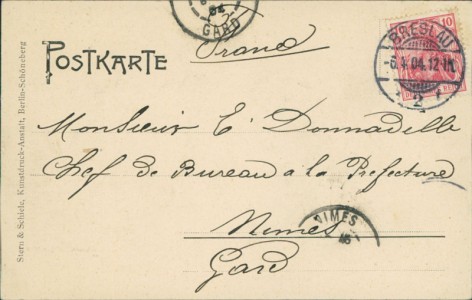 GARD
10
BRESLAU
-6.4.04.12-1N.
2
POSTKARTE
France
Monsieur E Donnadelle
Chef de Bureau à la Préfecture
Nimes
NIMES
Gard
Stern & Schiele, Kunstdruck-Anstalt, Berlin-Schöneberg